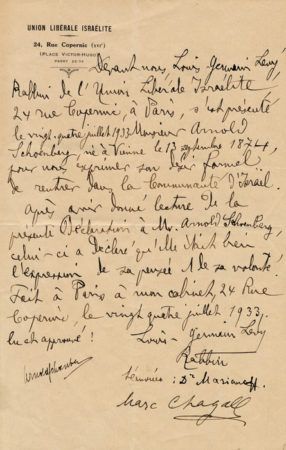 UNION LIBÉRALE ISRAÉLITE
24, Rue Copernic (XVIᵉ)
(PLACE VICTOR-HUGO)
PASSY
Devant nous, Louis Germain Lévy,
Rabbin de l'Union Libérale Israélite,
24 rue Copernic, à Paris, s'est présenté
le vingt-quatre juillet 1933 Monsieur Arnold
Schönberg, né à Vienne le 13 septembre 1874,
pour nous exprimer son désir formel
de rentrer dans la Communauté d'Israël.
Après avoir donné lecture de la
présente Déclaration à Mr. Arnold Schoenberg,
celui-ci a déclaré qu'elle était bien
l'expression de sa pensée & de sa volonté.
Fait à Paris à mon cabinet, 24 Rue
Copernic, le vingt quatre juillet 1933.
lu et approuvé!
Louis-Germain Lévy
Rabbin
Arnold Schönberg
témoins: Dr Marianoff
Marc Chagall